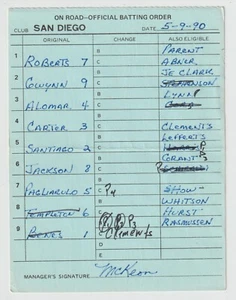 ON ROAD—OFFICIAL BATTING ORDER
CLUB SAN DIEGO DATE 5-9-90
ORIGINAL CHANGE ALSO ELIGIBLE
1 ROBERTS 7 B PARENT
C ABNER
2 GWYNN 9 B JE CLARK
C
3 ALOMAR 4 B LYNN
C
4 CARTER 3 B
C CLEMENTS
5 SANTIAGO 2 B LEFFERTS
C P
6 JACKSON 8 B GRANT P
C
7 PAGLIARULO 5 B
C SHOW
8 TEMPLETON 6 B WHITSON
C HURST
9 BENES 1 B RASMUSSEN
C Clements
D
E
MANAGER'S SIGNATURE McKeon